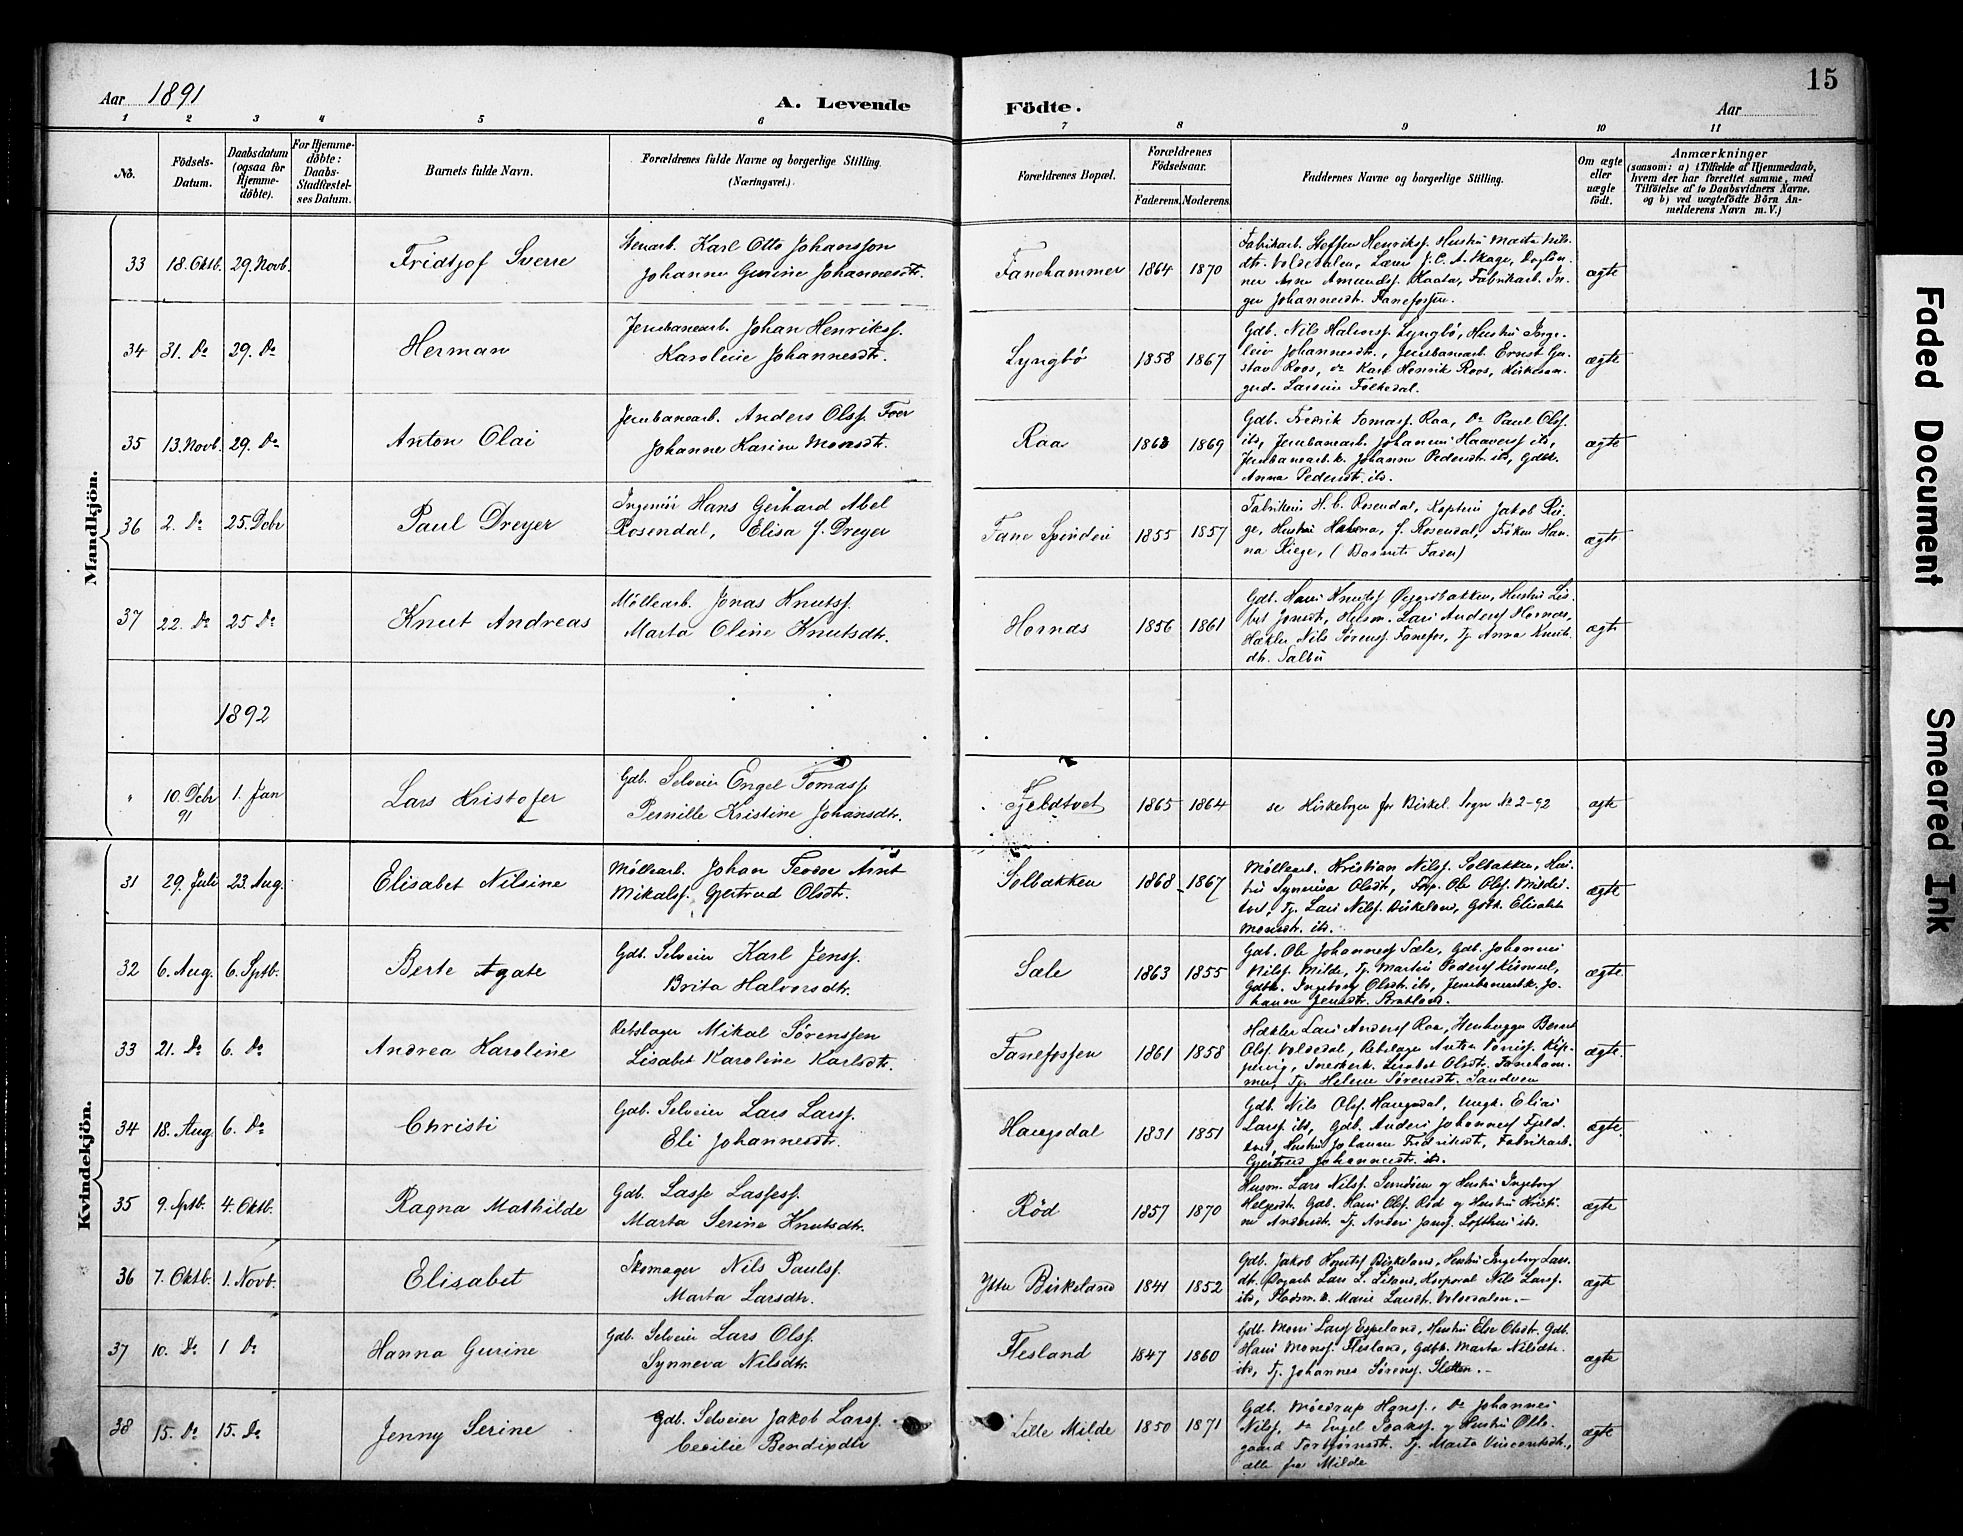 15
Aar 1891
A. Levende
Födte.
Aar
1 2 3 4 5 6 7 8 9 10 11
No.
Födsels-Datum.
Daabsdatum (ogsaa for Hjemme-døbte).
For Hjemme-døbte: Daabs-Stadfæstel-ses Datum.
Barnets fulde Navn.
Forældrenes fulde Navne og borgerlige Stilling. (Næringsvei.)
Forældrenes Bopæl.
Forældrenes Födselsaar.
Faderens. Moderens.
Faddernes Navne og borgerlige Stilling.
Om ægte eller uægte födt.
Anmærkninger
(saasom: a) i Tilfælde af Hjemmedaab,
hvem der har forrettet samme, med
Tilföielse af to Daabsvidners Navne.
og b) ved uægtefödte Börn An-
melderens Navn m. V.)
Mandkjön.
33 18. Oktb. 29. Novb. Fridtjof Sverre
Stenarb. Karl Otto Johansson
Johanne Gurine Johannesdtr.
Fanehammer 1864 1870
Fabrikarb. Steffen Henriksf. Hustru Marta Nils-
dtr. Voldedalen, Lærer J. C. A. Skage,
Anne Amundsf. Fabrikarb. In-
ger Johannesdtr. Fanefossen.
ægte
34 31. Do 29. Do Herman
Jernbanearb. Johan Henriksf.
Karoline Johannesdtr.
Lyngbø 1858 1867
Gdb. Nils Halvorsf. Lyngbø, Hustru Inge-
leiv Johannesdtr., Jernbanearb. Ernst Gu-
stav Roos, do Karl Henrik Roos, Kirkesan-
gerd. Larsine Folkedal.
ægte
35 13. Novb. 29. Do Anton Olai
Jernbanearb. Anders Olsf. Foer
Johanne Karine Monsdtr.
Raa 1863 1869
Gdb. Fredrik Tomasf. Raa, Do Paul Olsf.
ibd, Jernbanearb. Johannes Haaversf ibd,
Jernbanearb.k. Johanne Pedersdtr. ibd, Gdbk.
Anna Pedersdtr. ibd.
ægte
36 2. Do 25. Decbr Paul Dreyer
Ingeniör Hans Gerhard Abel
Rosendal, Elisa J. Dreyer
Fane Spinderi 1855 1857
Fabrikeier H. C. Rosendal, Kaptein Jakob Rie-
ge, Hustru J. Rosendal, Frøken Han-
na Riege, (Barnets Fader)
ægte
37 22. Do 25 Do Knut Andreas
Møllearb. Jonas Knutsf.
Marta Oline Knutsdtr.
Hornæs 1856 1861
Gdb. Hans Knutsf Øigardbakken, Hustru Lis-
bet Jonsdtr, Husm. Lars Andersf Hornæs,
Hækler Nils Sørensf. Fanefos, Tj. Anna Knuts-
dtr. Sælbu
ægte
1892
" 10. Decbr 91 1. Jan Lars Kristofer
Gdb. Selveier Engel Tomasf
Pernille Kristine Johansdtr.
Fjeldtvet 1865 1864
se Kirkebogen for Birkel. Sogn No 2-92
ægte
Kvindekjön.
31 29. Juli 23. Aug. Elisabet Nilsine
Møllearb. Johan Teodor Arnt
Mikalsf. Gjertrud Olsdtr.
Solbakken 1868 1867
Møllearb. Kristian Nilsf. Solbakken, Hus-
tru Synneva Olsdtr, Ole Olsf. Mildes-
tvet, Tj. Lars Nilsf. Birkeland, Gdbk. Elisabet
Monsdtr. ibd.
ægte
32 6. Aug. 6. Sptb. Berte Agate
Gdb. Selveier Karl Jensf.
Brita Halvorsdtr.
Sæle 1863 1855
Gdb. Ole Johannesf Sæle, Gdb. Johannes
Nilsf. Milde, Tj. Martin Pedersf Kismul,
Gdbk. Ingeborg Olsdtr. ibd, Jernbanearb.k. Jo-
hanne Jensdtr. Bratland.
ægte.
33 21. Do 6. Do Andrea Karoline
Rebslager Mikal Sørenssen
Lisabet Karoline Karlsdtr.
Fanefossen 1861 1858
Hækler Lars Andersf Raa, Husbygger Bernt
Olsf. Voldedal, Rebslager Anton Kip-
pervig, Snedkerk. Lisabet Olsdtr. Faneham-
mer, Tj. Helene Sørensdtr. Sandven
ægte.
34 18. Aug. 6. Do Christi
Gdb. Selveier Lars Larsf.
Eli Johannesdtr.
Haugsdal 1831 1851
Gdb. Nils Olsf. Haugsdal, Ungk. Elias
Larsf ibd, Gdb. Anders Johannesf Fjeld-
tved, Hustru Johanne Fredriksdtr, Fabrikarb.
Gjertrud Johannesdtr. ibd.
ægte.
35 9. Sptb. 4. Oktb. Ragna Mathilde
Gdb. Lasse Lassesf.
Marta Serine Knutsdtr.
Rød 1857 1870
Husm. Lars Nilsf. og Hustru Ingeborg
Helgesdtr. Gdb. Hans Olsf. Rød og Hustru Kristi-
ne Andersdtr. Tj. Anders Jonsf. Lofthus ibd.
ægte
36 7. Oktb. 1. Novb. Elisabet
Skomager Nils Paulsf.
Marta Larsdtr.
Ytre Birkeland 1841 1852
Gdb. Jakob Knutsf Birkeland, Hustru Ingeborg Lars-
dtr. Dagarb. Lars L. Liland, Korporal Nils Larsf.
ibd, Pladsm.k. Marie Larsdtr. Voldedalen.-
ægte
37 10. Do 1 Do Hanna Gurine
Gdb. Selveier Lars Olsf.
Synneva Nilsdtr.
Flesland 1847 1860
Gdb. Mons Larsf Espeland, Hustru Else Olsdtr. Gdb.
Hans Monsf. Flesland, Gdbk. Marta Nilsdtr.
ibd, Tj. Johannes Sørensf. Sletten.-
ægte
38 15. Do 15. Do Jenny Serine
Gdb. Selveier Jakob Larsf.
Cecilie Bendixdtr
Lille Milde 1850 1871
Gdb. Mowdrup Hansf., Do Johannes
Nilsf, Do Engel Isaksf. og Hustru Olle-
gaard Torbjørnsdtr. Tj. Marta Vincentsdtr.,
alle fra Milde
ægte
Faded Document
Smeared Ink